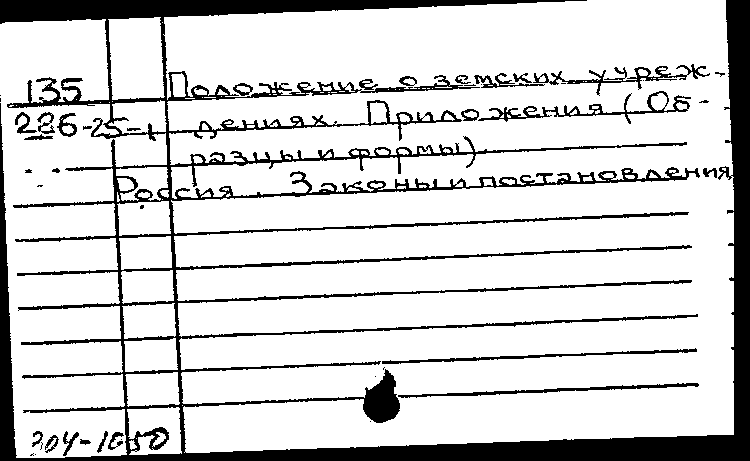 135 Положение о земских учреж-
286-25-1 дениях. Приложения (Об-
разцы и формы)
Россия. Законы и постановления
304-1650